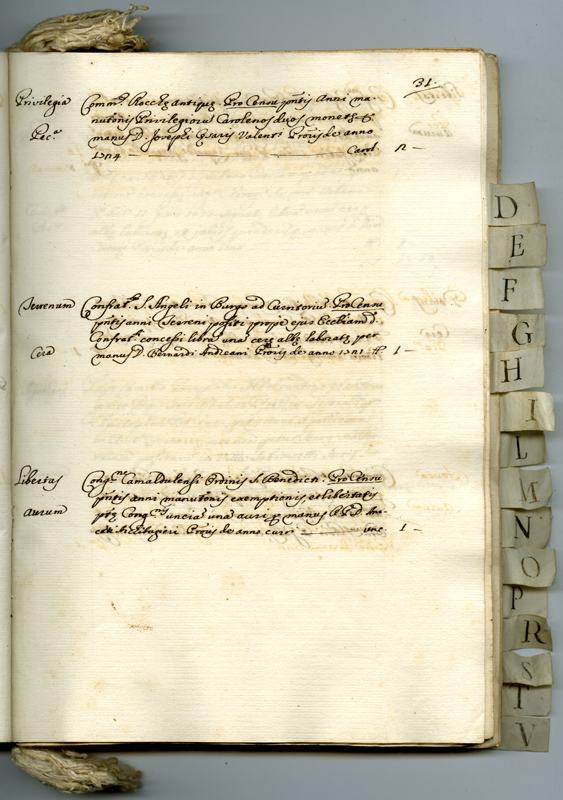 31.
Privilegia Comm.s Roccæ antiquæ. Pro Censu pntis Anni ma-
nutonis Privilegioru Carolenos duos monetæ &
Pec.a manus D. Joseph Valent. Proris de anno
1704 Carol. 2 —
Terrenum Confrat.s S. Angeli in Burgo ad Pro Censu
pntis anni Terreni positi prope ejus Eccliam d.
Confrat. concessi libra una ceræ albæ laboratæ per
Cera manus D. Bernardi Andreani Proris de anno 1701 # 1 —
Libertas Congnis Camaldulensis Ordinis S. Benedicti. Pro Censu
pntis anni manutonis exemptionis, et libertatis
Aurum Congnis uncia una auri manus P. D.
Proris de anno unc. 1 —
D
E
F
G
H
I
L
M
N
O
P
R
S
T
V